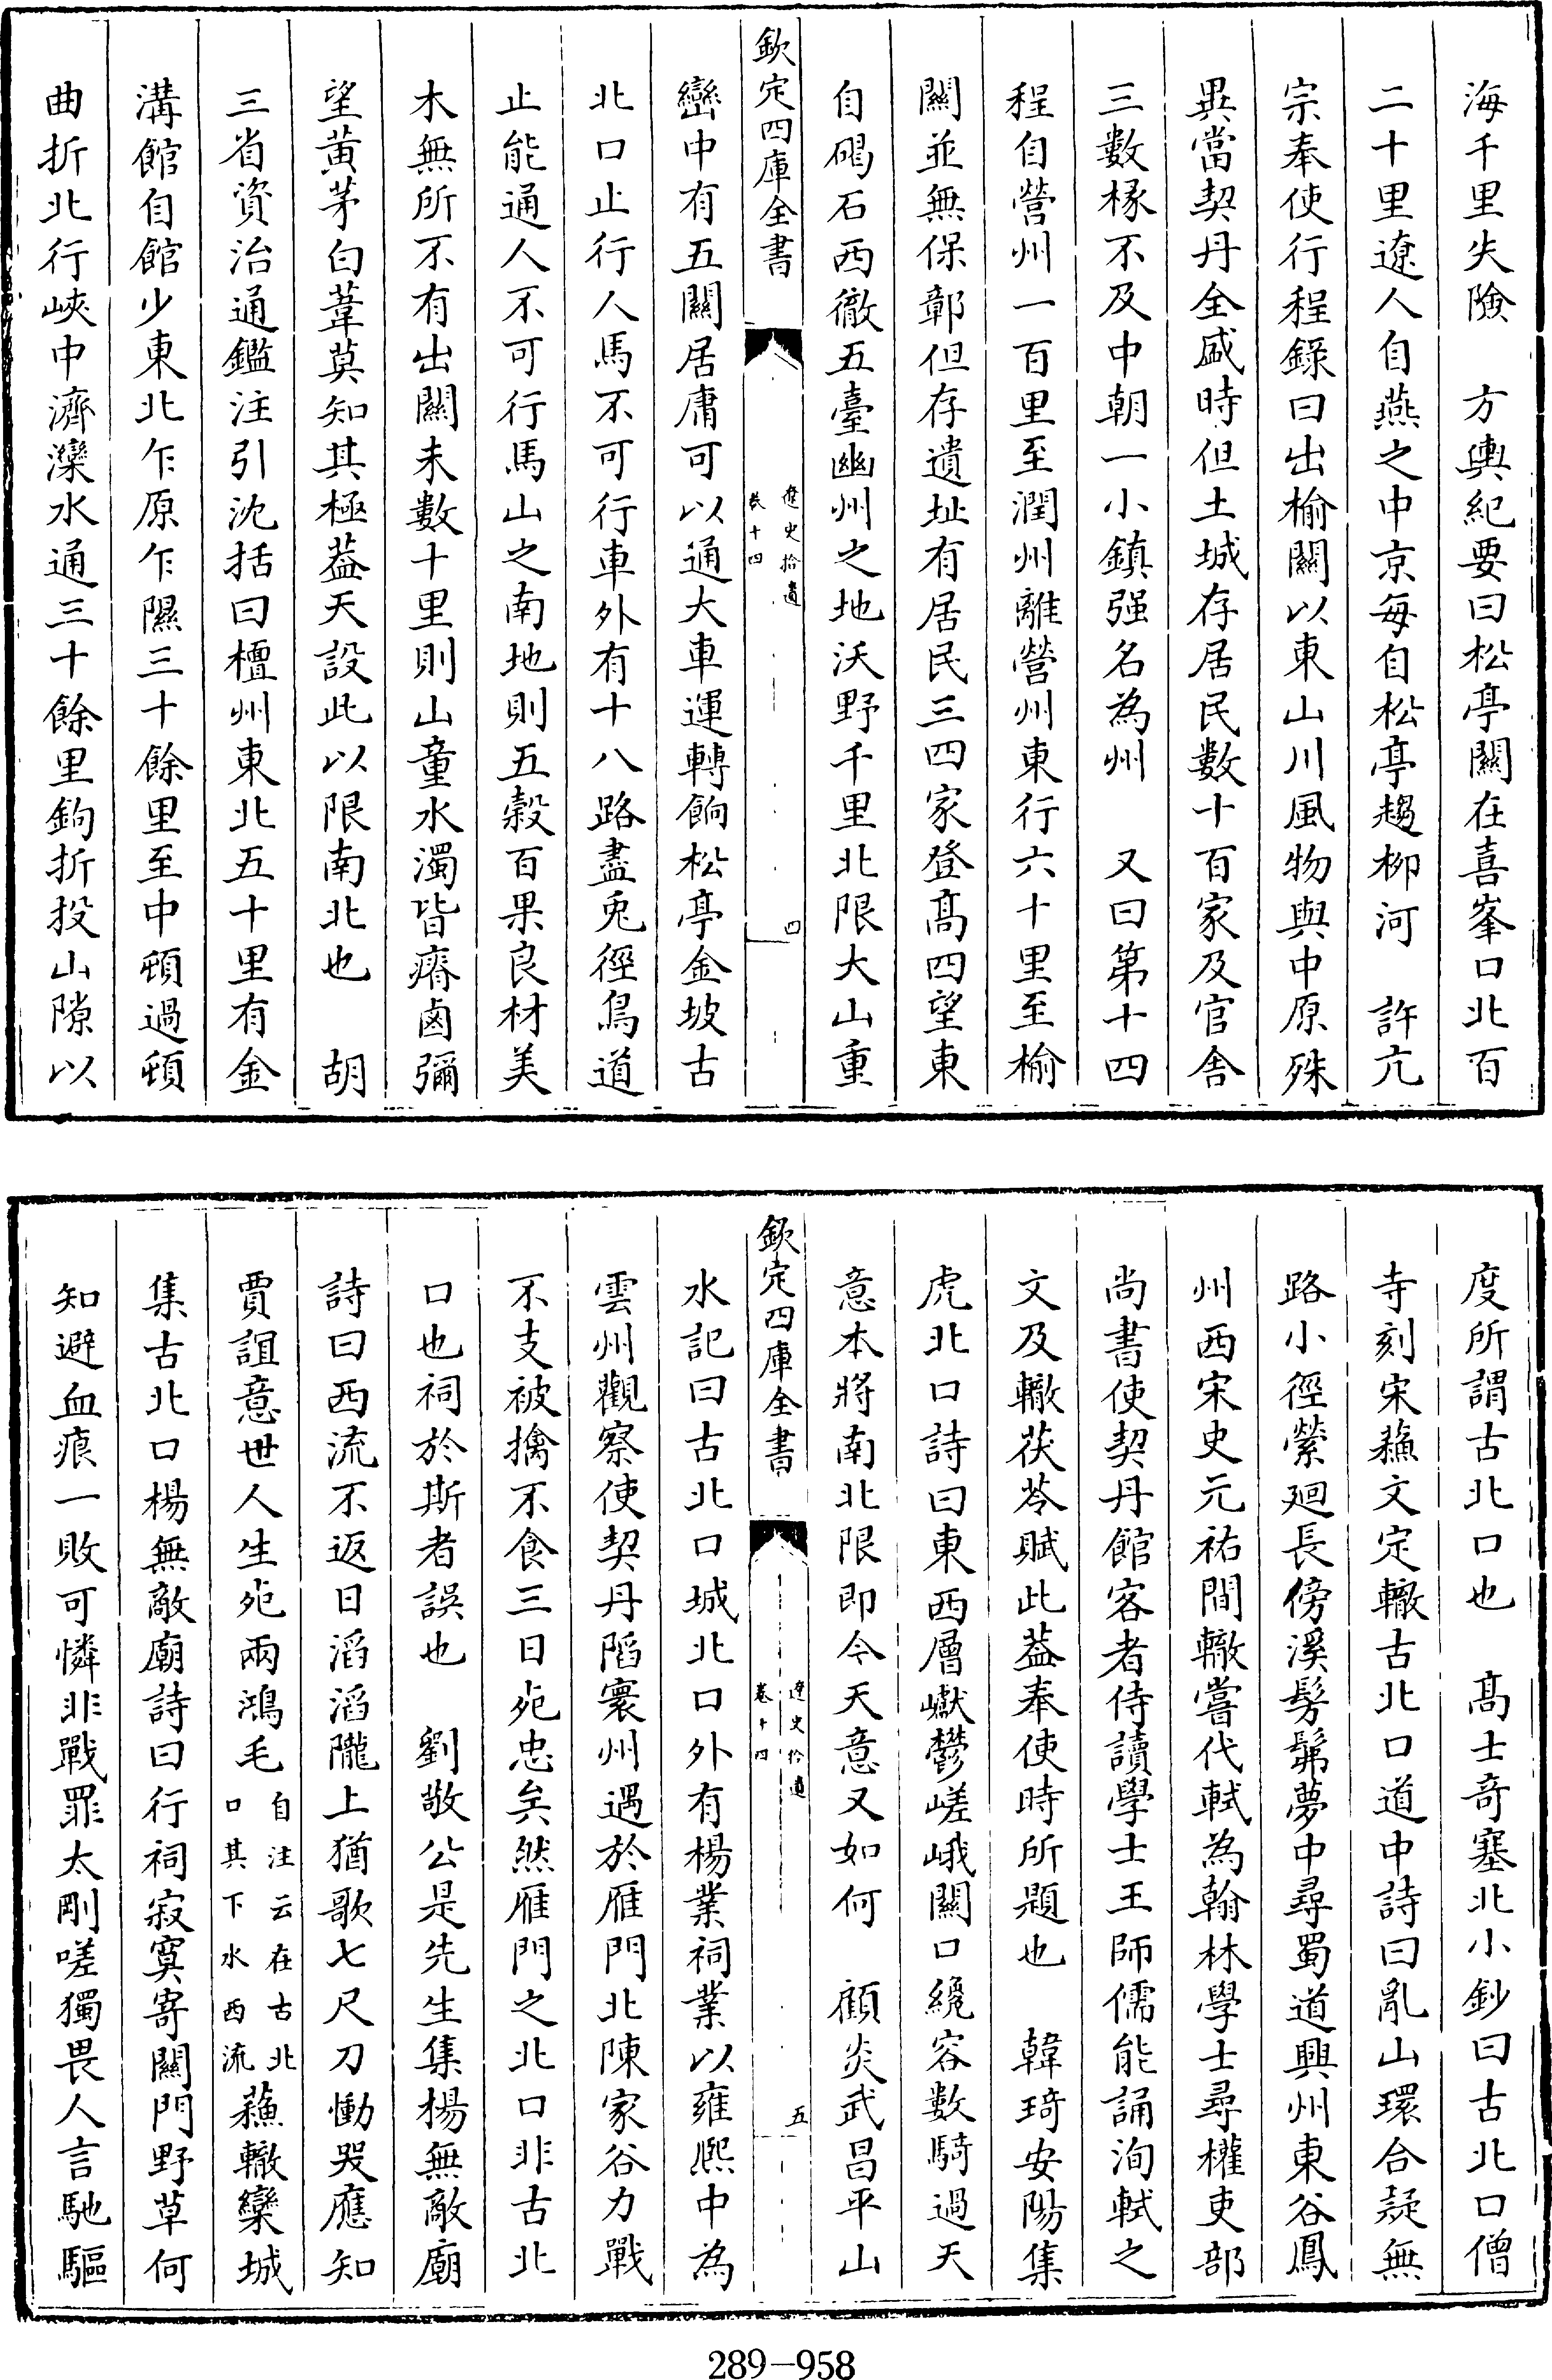 海千里失險　方輿紀要曰松亭關在喜峯口北百
二十里遼人自燕之中京每自松亭趨柳河　許亢
宗奉使行程錄曰出榆關以東山川風物與中原殊
異當契丹全盛時但土城存居民數十百家及官舍
三數椽不及中朝一小鎮强名為州　又曰第十四
程自營州一百里至潤州離營州東行六十里至榆
關並無保鄣但存遺址有居民三四家登髙四望東
自碣石西徹五臺幽州之地沃野千里北限大山重
欽定四庫全書　遼史拾遺　卷十四　四
巒中有五關居庸可以通大車運轉餉松亭金坡古
北口止行人馬不可行車外有十八路盡兎徑鳥道
止能通人不可行馬山之南地則五榖百果良材美
木無所不有出關未數十里則山童水濁皆瘠鹵彌
望黃茅白葦莫知其極葢天設此以限南北也　胡
三省資治通鑑注引沈括曰檀州東北五十里有金
溝館自館少東北乍原乍隰三十餘里至中頓過頓
曲折北行峽中濟灤水通三十餘里鉤折投山隙以
度所謂古北口也　髙士奇塞北小鈔曰古北口僧
寺刻宋蘓文定轍古北口道中詩曰亂山環合疑無
路小徑縈廻長傍溪髣髴夢中尋蜀道興州東谷鳳
州西宋史元祐間轍嘗代軾為翰林學士尋權吏部
尚書使契丹館客者侍讀學士王師儒能誦洵軾之
文及轍茯苓賦此葢奉使時所題也　韓琦安陽集
虎北口詩曰東西層巘鬱嵯峨關口纔容數騎過天
意本將南北限即今天意又如何　顧炎武昌平山
欽定四庫全書　遼史拾遺　卷十四　五
水記曰古北口城北口外有楊業祠業以雍熙中為
雲州觀察使契丹陷寰州遇於雁門北陳家谷力戰
不支被擒不食三日死忠矣然雁門之北口非古北
口也祠於斯者誤也　劉敞公是先生集楊無敵廟
詩曰西流不返日滔滔隴上猶歌七尺刀慟哭應知
賈誼意世人生死兩鴻毛自注云在古北口其下水西流蘓轍欒城
集古北口楊無敵廟詩曰行祠寂寞寄關門野草何
知避血痕一敗可憐非戰罪太剛嗟獨畏人言馳驅
289-958